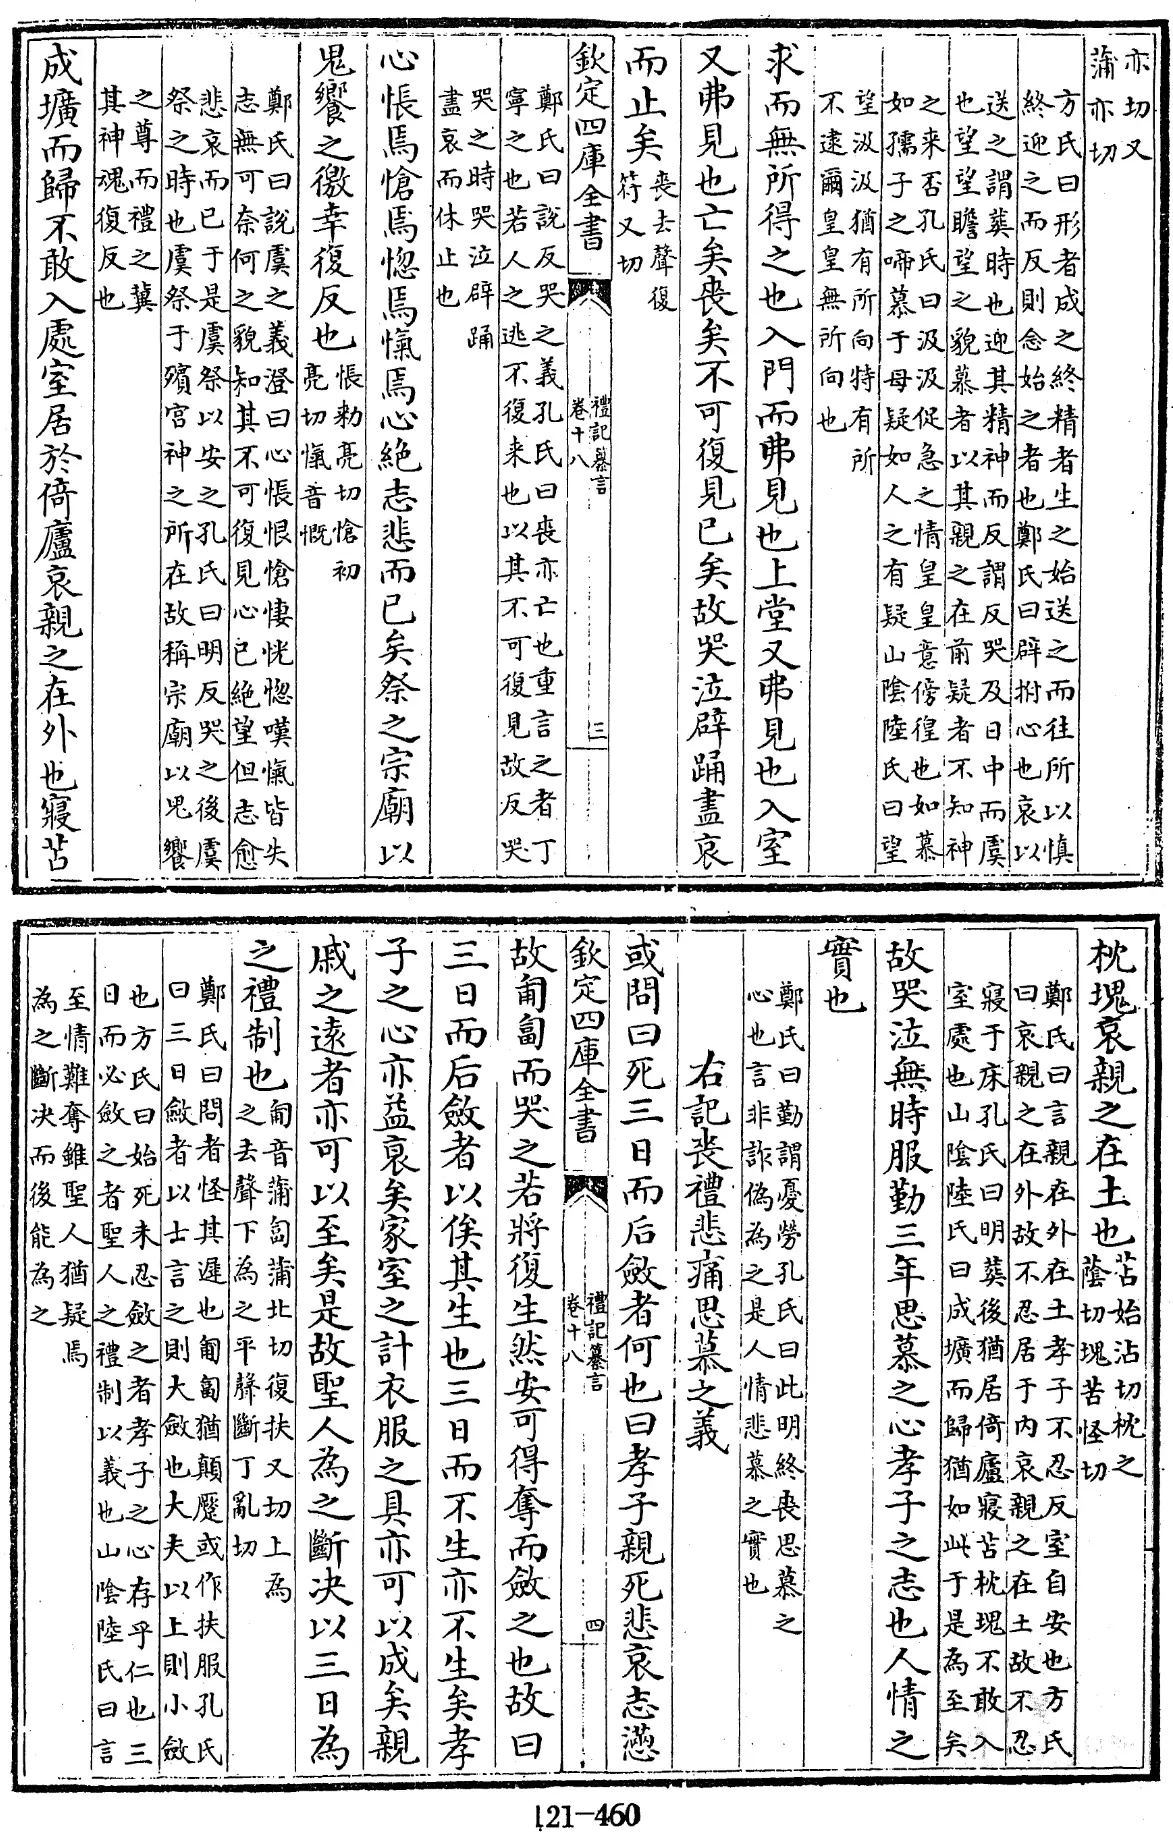 亦切又
蒲亦切
方氏曰形者成之終精者生之始送之而往所以慎
終迎之而反則念始之者也鄭氏曰辟拊心也哀以
送之謂葬時也迎其精神而反謂反哭及日中而虞
也望望瞻望之貌慕者以其親之在前疑者不知神
之来否孔氏曰汲汲促急之情皇皇意傍徨也如慕
如孺子之啼慕于母疑如人之有疑山陰陸氏曰望
望汲汲猶有所向特有所
不逮爾皇皇無所向也
求而無所得之也入門而弗見也上堂又弗見也入室
又弗見也亡矣喪矣不可復見已矣故哭泣辟踊盡哀
而止矣喪去聲復
符又切
欽定四庫全書
禮記纂言
卷十八
三
鄭氏曰說反哭之義孔氏曰喪亦亡也重言之者丁
寧之也若人之逃不復来也以其不可復見故反哭
哭之時哭泣辟踊
盡哀而休止也
心悵焉愴焉惚焉愾焉心絶志悲而已矣祭之宗廟以
鬼饗之徼幸復反也悵勑亮切愴初
亮切愾音慨
鄭氏曰說虞之義澄曰心悵恨愴悽恍惚嘆愾皆失
志無可奈何之貌知其不可復見心已絶望但志愈
悲哀而已于是虞祭以安之孔氏曰明反哭之後虞
祭之時也虞祭于殯宮神之所在故稱宗廟以鬼饗
之尊而禮之冀
其神魂復反也
成壙而歸不敢入處室居於倚廬哀親之在外也寢苫
枕塊哀親之在土也苫始沾切枕之
蔭切塊苦怪切
鄭氏曰言親在外在土孝子不忍反室自安也方氏
曰哀親之在外故不忍居于内哀親之在土故不忍
寢于床孔氏曰明葬後猶居倚廬寢苫枕塊不敢入
室處也山陰陸氏曰成壙而歸猶如此于是為至矣
故哭泣無時服勤三年思慕之心孝子之志也人情之
實也
鄭氏曰勤謂憂勞孔氏曰此明終喪思慕之
心也言非詐偽為之是人情悲慕之實也
右記喪禮悲痛思慕之義
或問曰死三日而后斂者何也曰孝子親死悲哀志懣
欽定四庫全書
禮記纂言
卷十八
四
故匍匐而哭之若將復生然安可得奪而斂之也故曰
三日而后斂者以俟其生也三日而不生亦不生矣孝
子之心亦益衰矣家室之計衣服之具亦可以成矣親
戚之遠者亦可以至矣是故聖人為之斷决以三日為
之禮制也匍音蒲匐蒲北切復扶又切上為
之去聲下為之平聲斷丁亂切
鄭氏曰問者怪其遲也匍匐猶顛蹷或作扶服孔氏
曰三日斂者以士言之則大斂也大夫以上則小斂
也方氏曰始死未忍斂之者孝子之心存乎仁也三
日而必斂之者聖人之禮制以義也山陰陸氏曰言
至情難奪雖聖人猶疑焉
為之斷决而後能為之
121-460